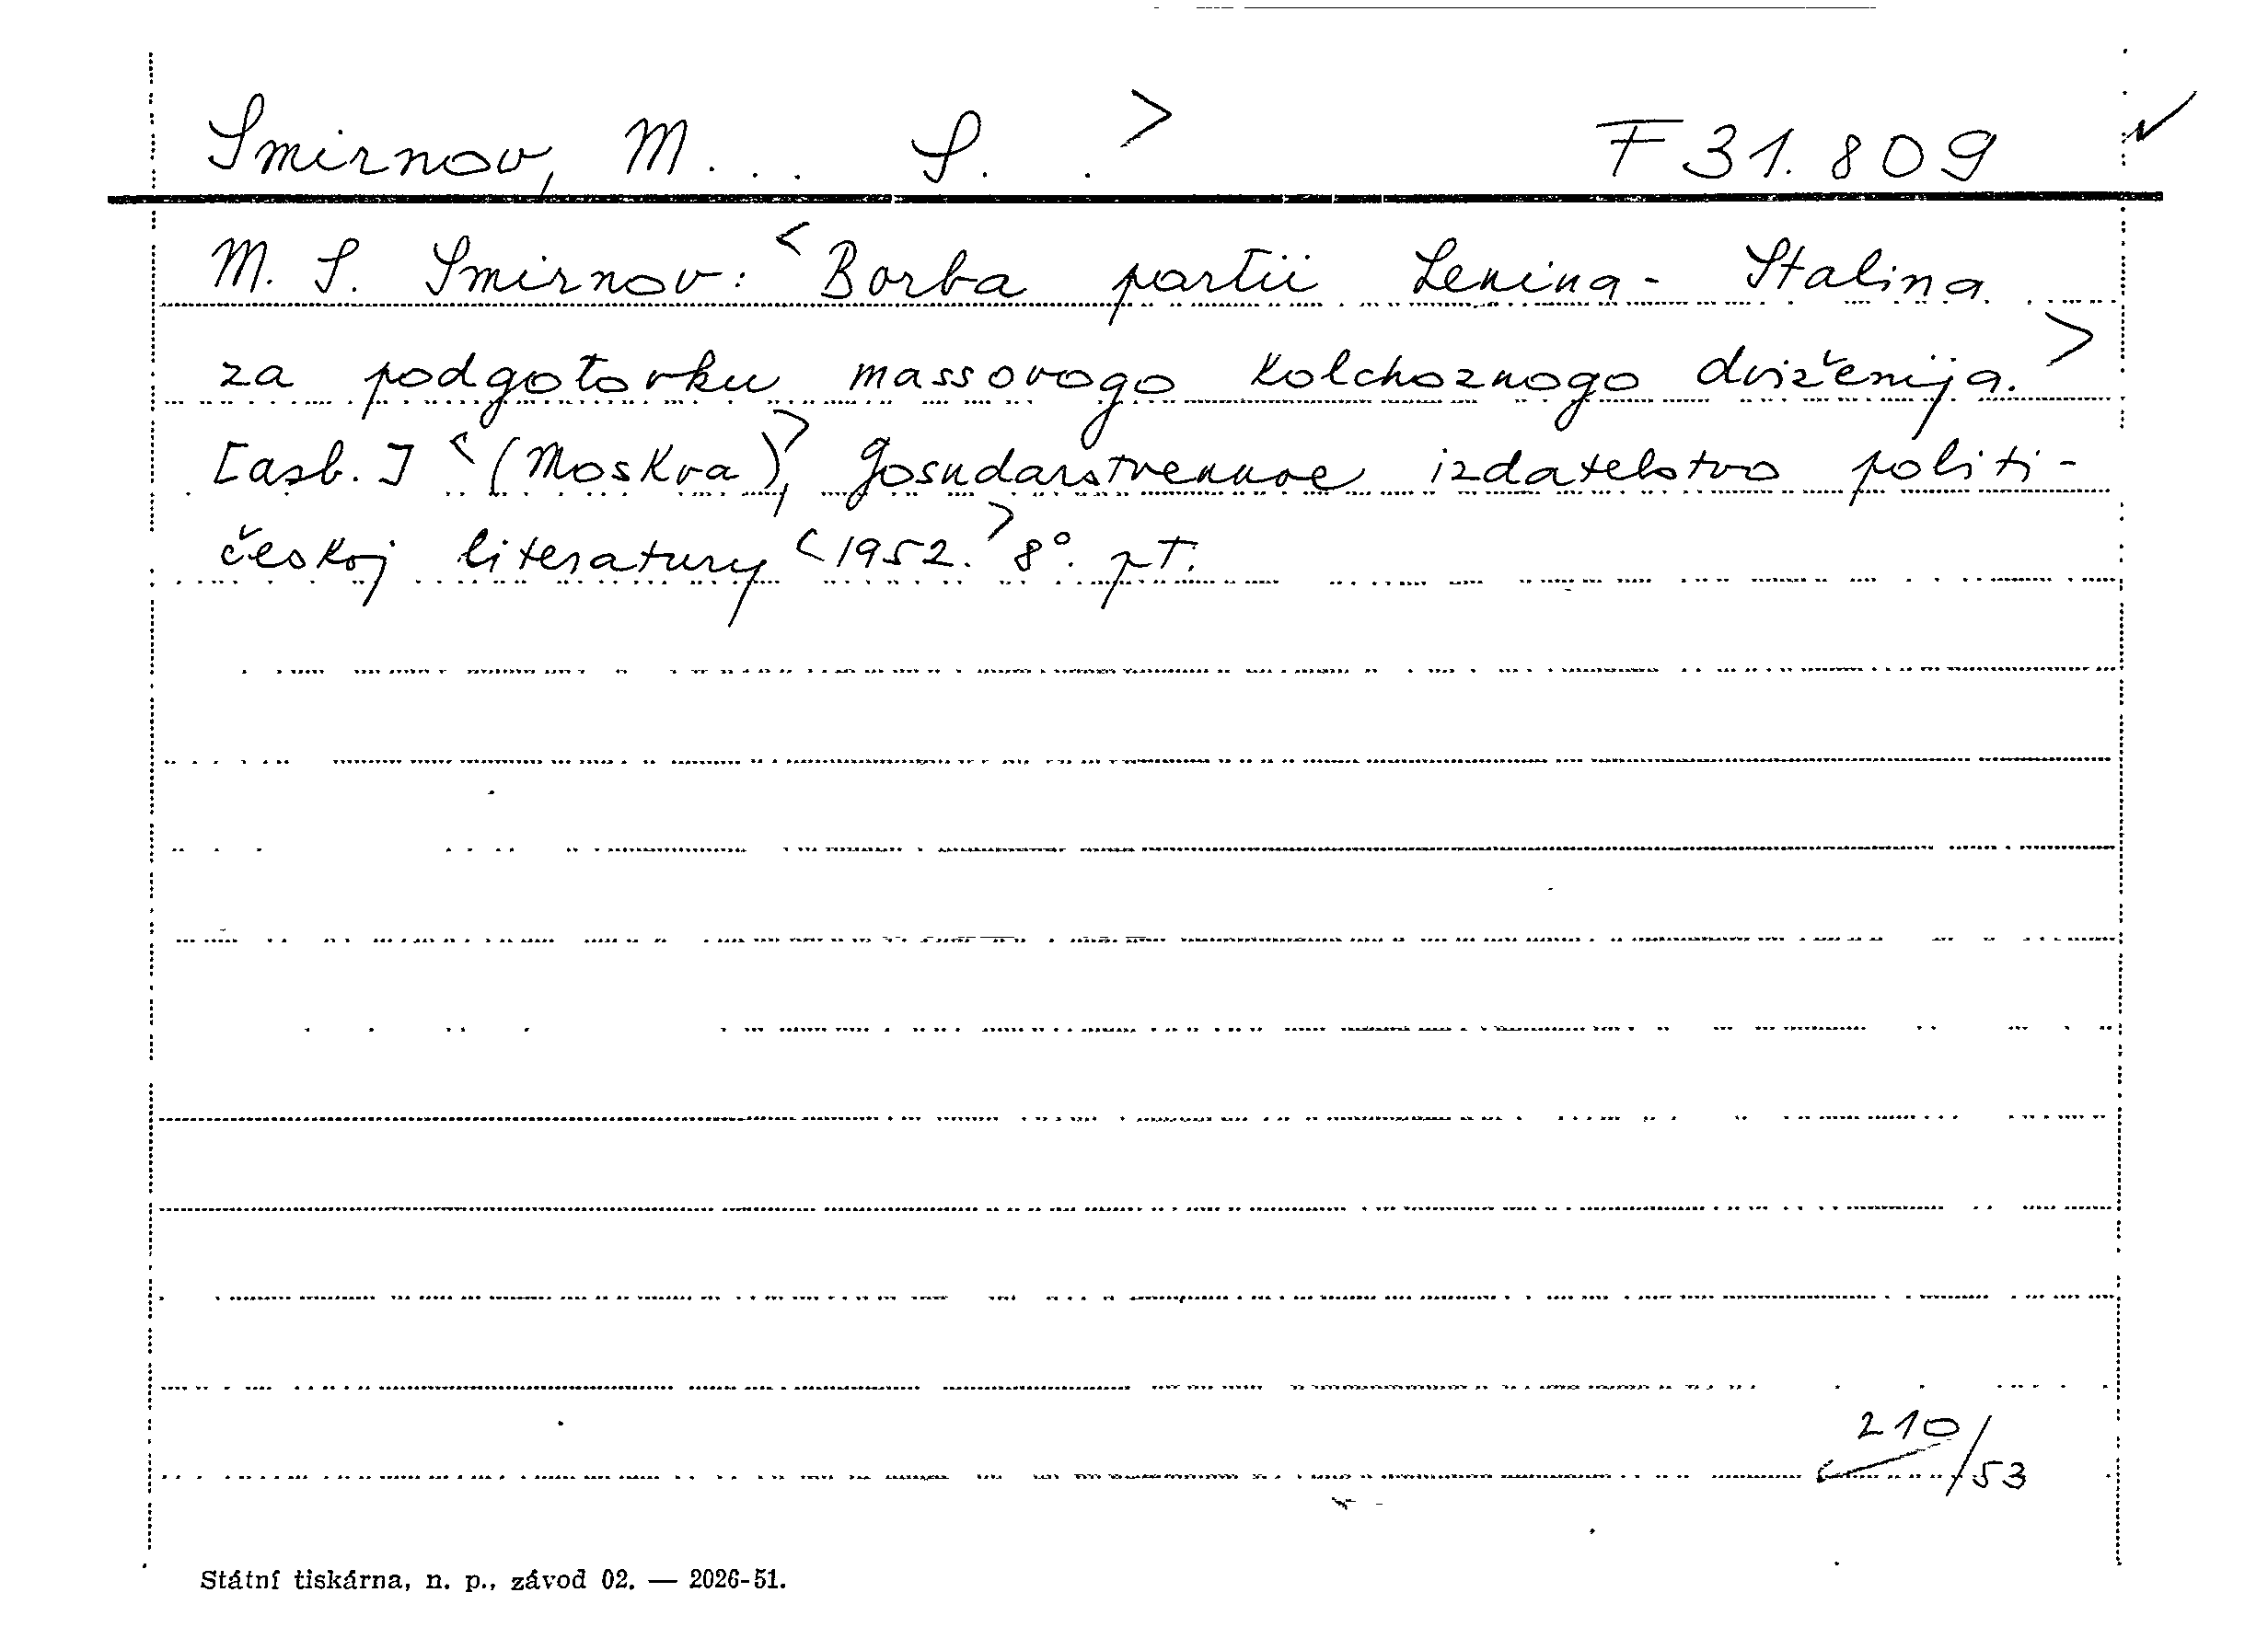 Smirnov, M... S. . > F 31.809
M. S. Smirnov: <Borba partii Lenina-Stalina
za podgotovku massovogo kolchoznogo dviženija.>
[asb.] <(Moskva)>, Gosudarstvennoe izdatelstvo politi-
českoj literatury <1952.> 8°. pt.
210/53
Státní tiskárna, n. p., závod 02. — 2026-51.